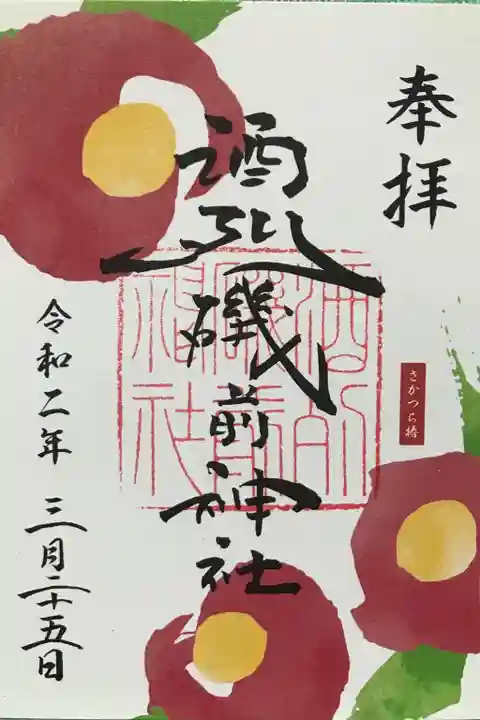 奉拝
さかつら椿
酒列磯前神社
酒列
磯前
神社
令和二年 三月二十五日